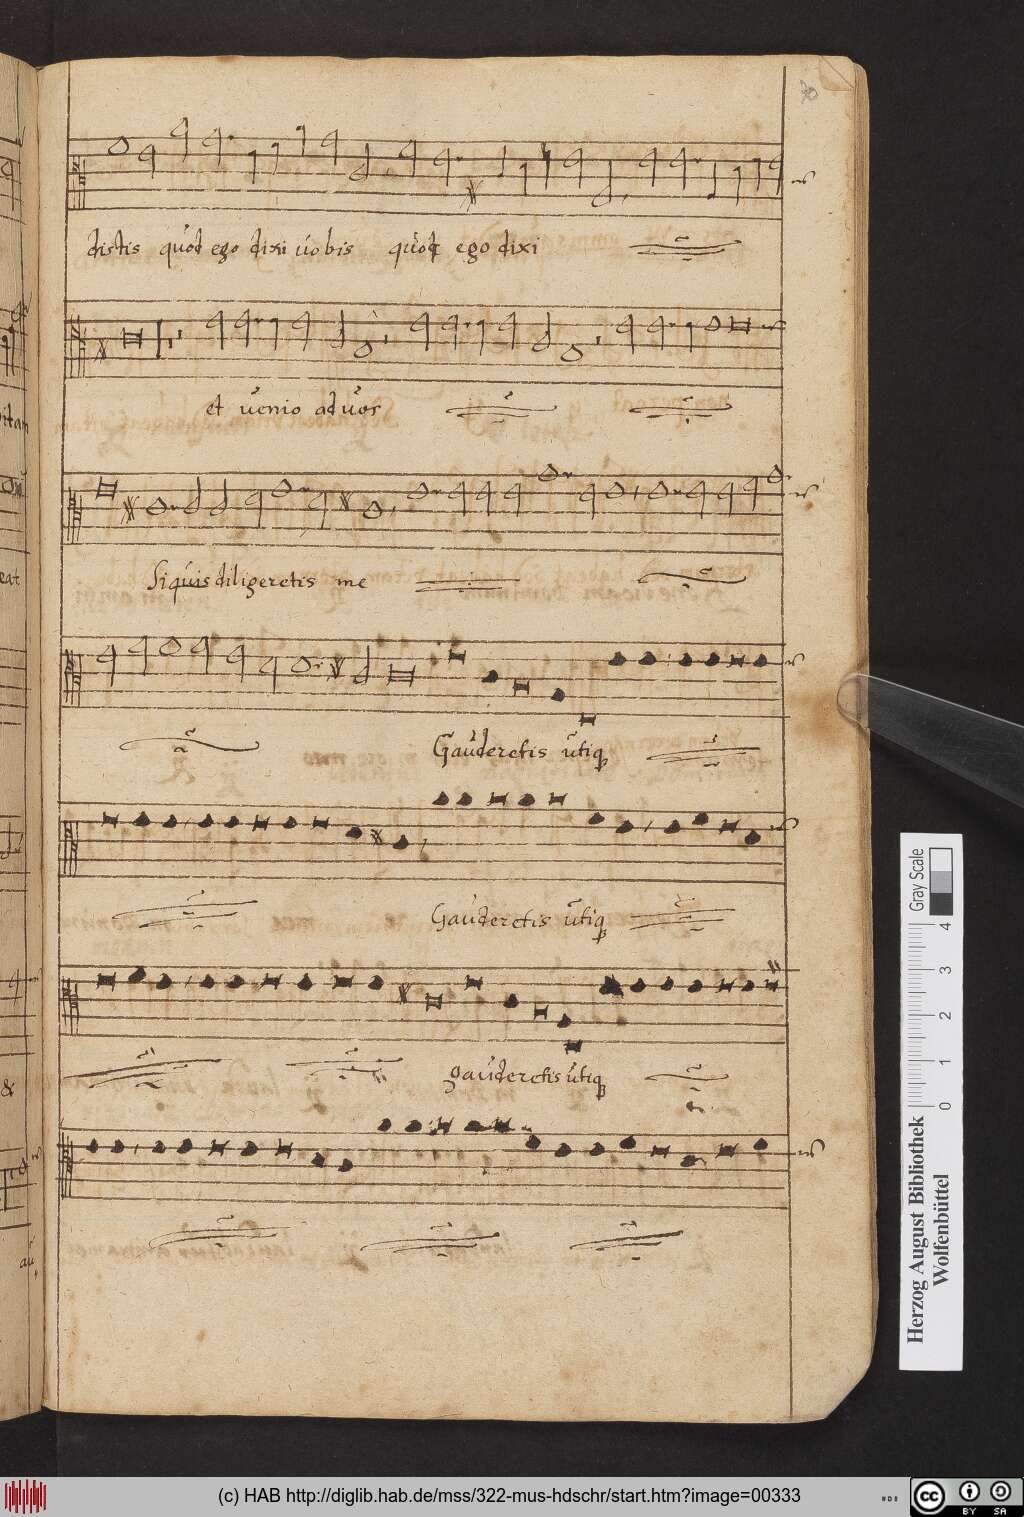 30
distis quod ego dixi uobis quod ego dixi
et uenio ad uos
Si quis diligeretis me
Gauderetis utiq
Gauderetis utiq
gauderetis utiq
Gray Scale
4 3 2 1 0
Herzog August Bibliothek
Wolfenbüttel
(c) HAB http://diglib.hab.de/mss/322-mus-hdschr/start.htm?image=00333
cc BY SA